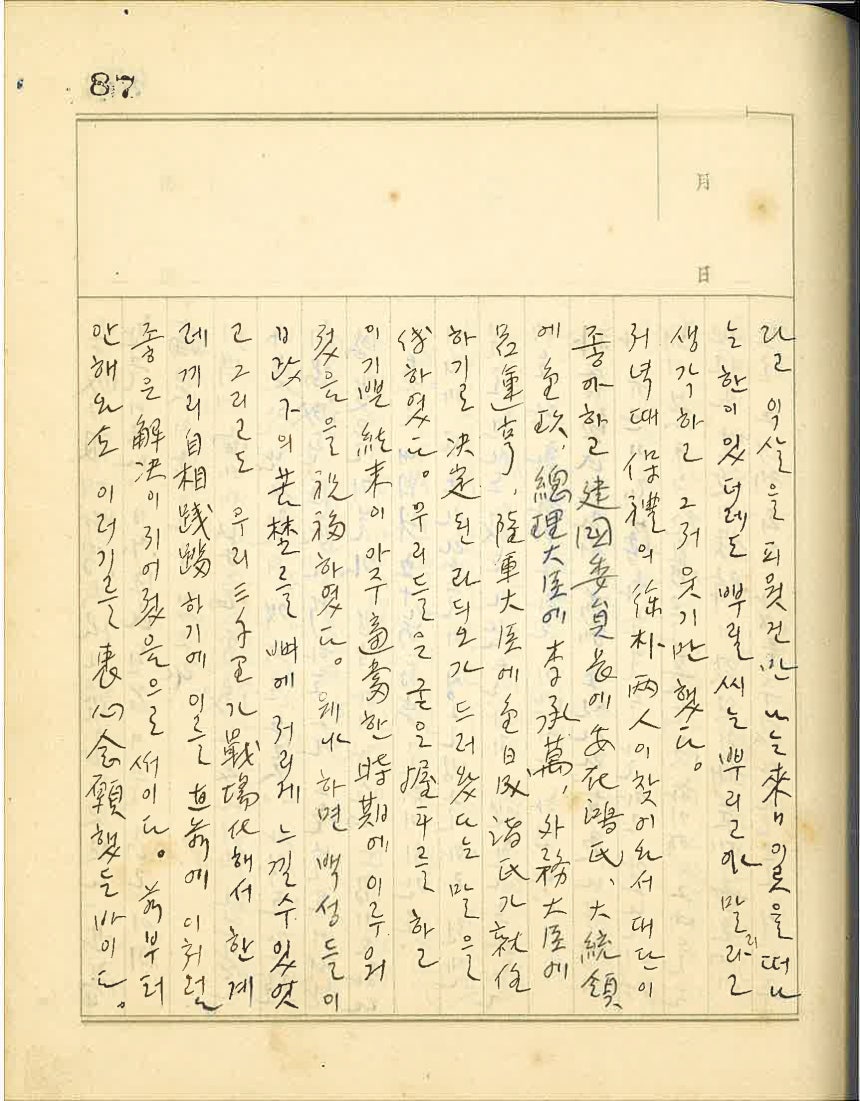 87
月
日
라고 익살을 피웟건만 나는 來日 이곳을 떠나
는 한이 있더래도 뿌릴 씨는 뿌리고야 말리라고
생각하고 그저 웃기만 했다.
저녁때 保禮의 徐朴 两人이 찾어와서 대단이
좋아하고 建國委員長에 安在鴻氏、大統領
에 金玖、總理大臣에 李承萬、外務大臣에
呂運亨、陸軍大臣에 金日成 諸氏가 就任
하기로 決定된 라듸오가 드러왔다는 말을
傳하였다。우리들은 굳은 握手를 하고
이 기쁜 結末이 아주 適當한 時期에 이루워
젔음을 祝福하였다。웨냐하면 백성들이
日政下의 苦楚를 뼈에 저리게 느낄 수 있엇
고 그리고도 우리 三千里가 戰場化해서 한 계
레끼리 自相踐踏하기에 이를 直前에 이처럼
좋은 解決이 지어젔음으로써이다。前부터
안해와도 이러기를 衷心 念願했든 바이다。